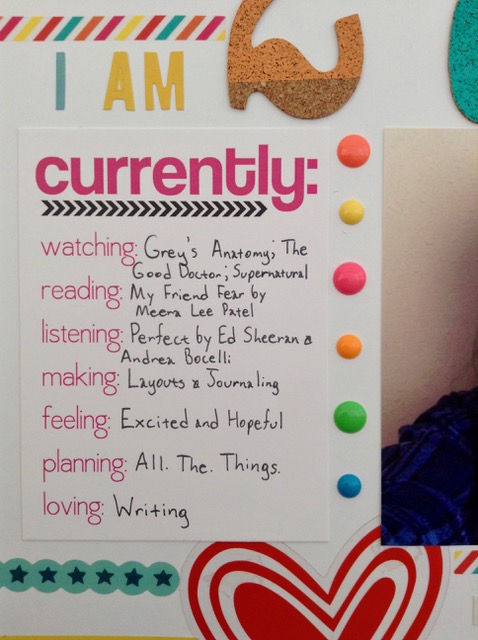 I AM
currently:
watching: Grey's Anatomy; The
Good Doctor; Supernatural
reading: My Friend Fear by
Meera Lee Patel
listening: Perfect by Ed Sheeran &
Andrea Bocelli
making: Layouts & Journaling
feeling: Excited and Hopeful
planning: All. The. Things.
loving: Writing